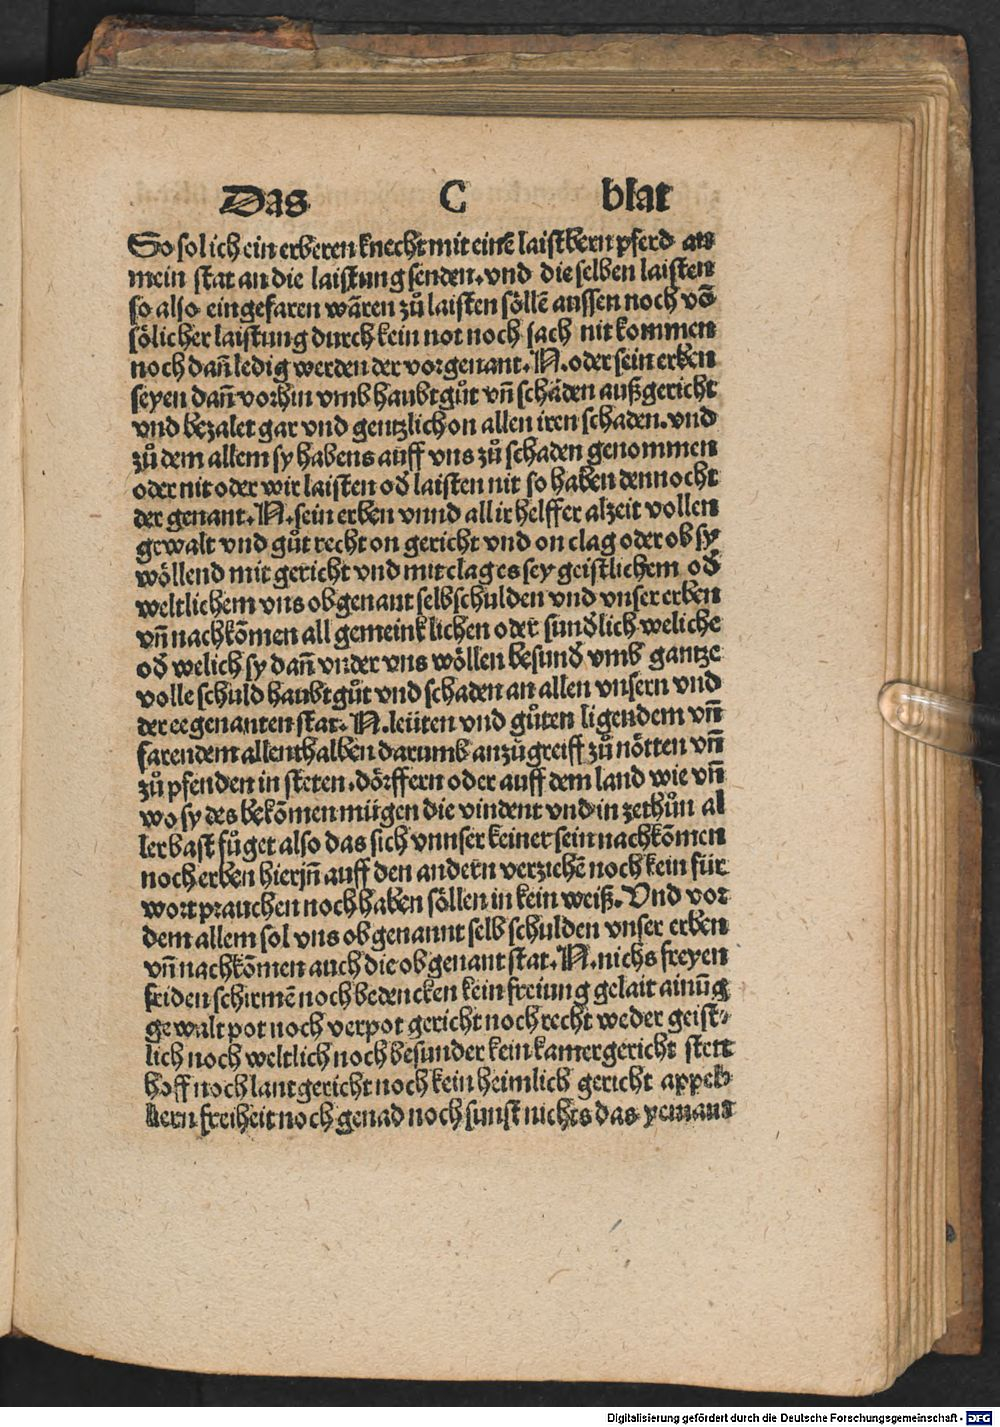 Das C blat
So sol ich ein erberen knecht mit einē laistbern pferd an
mein stat an die laistung senden. vnd die selben laisten
so also eingefaren wären zů laisten söllē aussen noch vō
sölicher laistung durch kein not noch sach nit kommen
noch dañ ledig werden der vorgenant. N. oder sein erben
seyen dañ vorhin vmb haubtgůt vñ schäden außgericht
vnd bezalet gar vnd gentzlich on allen iren schaden. vnd
zů dem allem sy habens auff vns zů schaden genommen
oder nit oder wir laisten od̄ laisten nit so haben dennocht
der genant. N. sein erben vnnd all ir helffer alzeit vollen
gewalt vnd gůt recht on gericht vnd on clag oder ob sy
wöllend mit gericht vnd mit clag es sey geistlichem od̄
weltlichem vns obgenant selbschulden vnd vnser erben
vñ nachkōmen all gemeinklichen oder sund̄lich weliche
od̄ welich sy dañ vnder vns wöllen besund̄ vmb gantze
volle schuld haubtgůt vnd schaden an allen vnsern vnd
der eegenanten stat. N. leüten vnd gůten ligendem vñ
farendem allenthalben darumb anzůgreiff zů nötten vñ
zů pfenden in steten. dörffern oder auff dem land wie vñ
wo sy des bekōmen mügen die vindent vnd in zethůn al
ler bast fůget also das sich vnnser keiner sein nachkōmen
noch erben hierjñ auff den andern verziehē noch kein für
wort prauchen noch haben söllen in kein weiß. Vnd vor
dem allem sol vns obgenannt selbschulden vnser erben
vñ nachkōmen auch die obgenant stat. N. nichs freyen
friden schirmē noch bedencken kein freiung gelait ainūg
gewalt pot noch verpot gericht noch recht weder geist-
lich noch weltlich noch besunder kein kamergericht stett
hoff noch lantgericht noch kein heimlich gericht appel-
liern freiheit noch genad noch sunst nichts das yemant
Digitalisierung gefördert durch die Deutsche Forschungsgemeinschaft - DFG